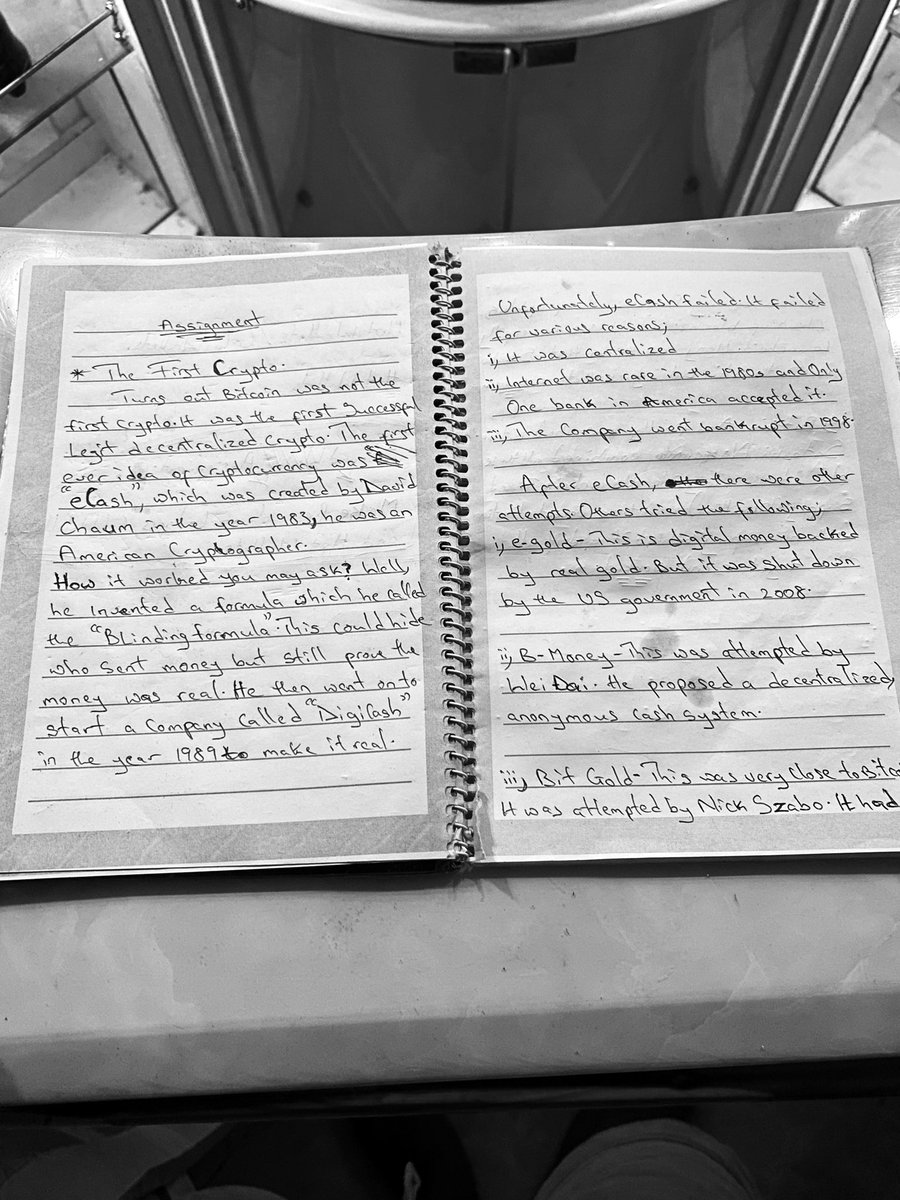 Assignment
* The First Crypto.
Turns out Bitcoin was not the
first Crypto. It was the first Successful
Legit decentralized Crypto. The first
ever idea of Cryptocurrency was
"eCash", which was created by David
Chaum in the year 1983, he was an
American Cryptographer.
How it worked you may ask? Well,
he invented a formula which he called
the "Blinding formula". This could hide
who sent money but still prove the
money was real. He then went on to
start a Company Called "DigiCash"
in the year 1989 to make it real.
Unfortunately, eCash failed. It failed
for various reasons;
i, It was centralized
ii, Internet was rare in the 1980s and Only
One bank in America accepted it.
iii, The Company went bankrupt in 1998.
After eCash, there were other
attempts. Others tried the following;
i, e-gold - This is digital money backed
by real gold. But it was shut down
by the US government in 2008.
ii, B-Money - This was attempted by
Wei Dai. He proposed a decentralized,
anonymous cash system.
iii, Bit Gold - This was very close to Bitco
It was attempted by Nick Szabo. It had